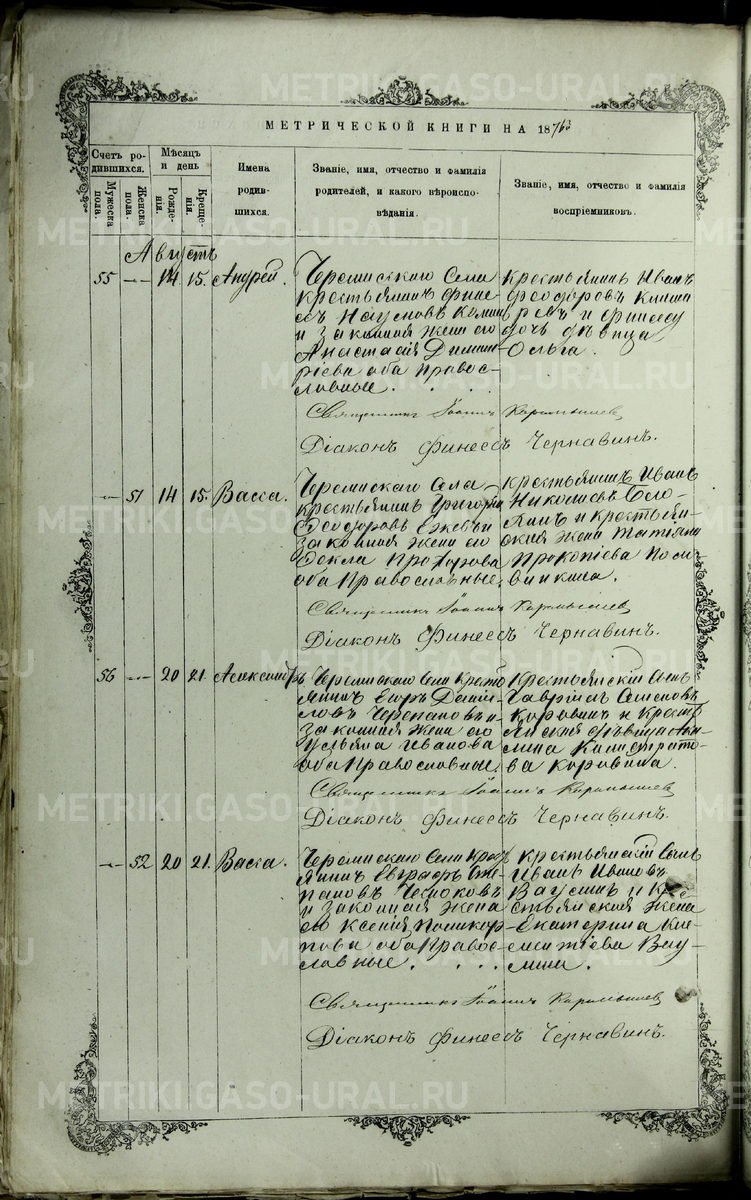 МЕТРИЧЕСКОЙ КНИГИ НА 18
Счетъ родившихся.
Мужеска пола.
Женска пола.
Мѣсяцъ и день
Рожденія.
Крещенія.
Имена родившихся.
Званіе, имя, отчество и фамилія родителей, и какого вѣроисповѣданія.
Званіе, имя, отчество и фамилія воспріемниковъ.
Августъ
55 — 14 15. Андрей.
Черемисскаго Села
крестьянинъ Фине-
есъ Наумовъ
и законная жена его
Анастасія Димит-
ріева оба правос-
лавные.
Крестьянинъ Иванъ
Феодоровъ
и
дочь дѣвица
Ольга.
Священникъ Іоаннъ Карамышев
Діаконъ Финеесъ Чернавинъ.
— 51 14 15. Васса.
Черемисскаго Села
крестьянинъ Григорій
Феодоровъ Ежовъ и
законная жена его
Фекла Прохорова
оба Православные.
Крестьянинъ Иванъ
Николаевъ
и крестьян-
ская жена Татіана
Прокопіева
Священникъ Іоаннъ Карамышев
Діаконъ Финеесъ Чернавинъ.
56 — 20 21. Александръ
Черемисскаго Села Кресть
янинъ Егоръ Дании-
ловъ Черепановъ и
законная жена его
Ульяна Иванова
оба Православные.
Крестьянскій сынъ
Гавріилъ Семеновъ
Коровинъ и Кресть
янская дѣвица
Калистрато-
ва Коровина.
Священникъ Іоаннъ Карамышев
Діаконъ Финеесъ Чернавинъ.
— 52 20 21. Васса.
Черемисскаго Села Крест
янинъ Евграфъ Сте-
пановъ Чесноковъ
и законная жена
его Ксенія Поликар-
пова оба Правос-
лавные.
Крестьянскій сынъ
Иванъ Ивановъ
Ваулинъ и Кре-
стьянская жена
Екатерина Кле-
ментіева Вау-
лина.
Священникъ Іоаннъ Карамышев
Діаконъ Финеесъ Чернавинъ.
METRIKI.GASO-URAL.RU